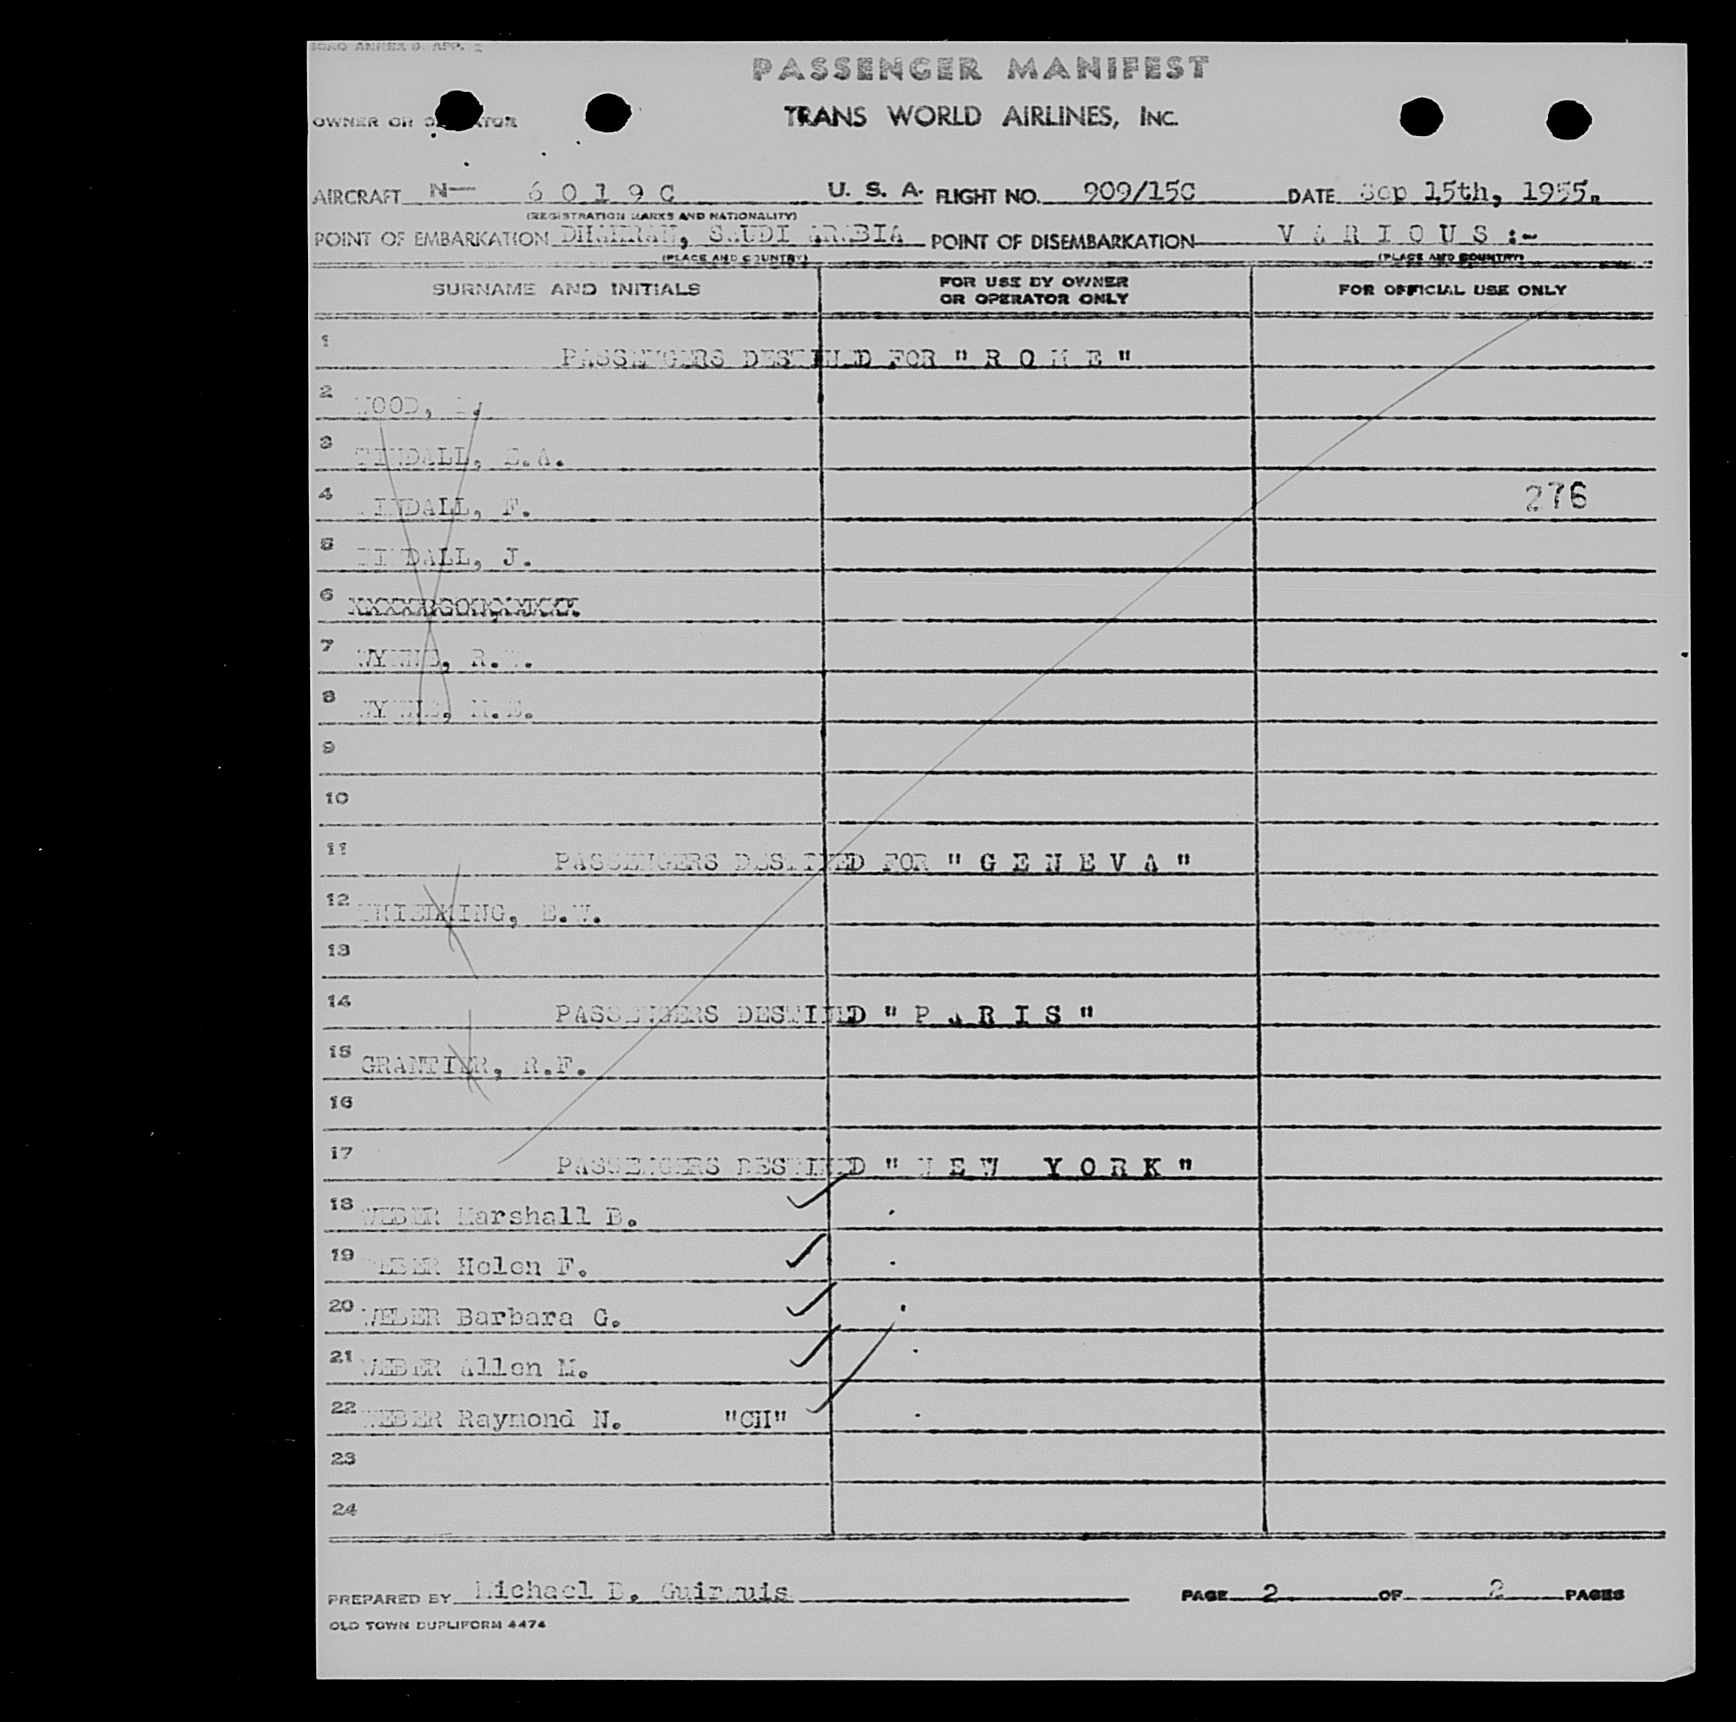 ICAO ANNEX 9, APP. 2
PASSENGER MANIFEST
OWNER OR OPERATOR TRANS WORLD AIRLINES, INC.
AIRCRAFT N— 6 0 1 9 C U. S. A. FLIGHT NO. 909/15C DATE Sep 15th, 1955.
(REGISTRATION MARKS AND NATIONALITY)
POINT OF EMBARKATION DHAHRAN, SAUDI ARABIA POINT OF DISEMBARKATION V A R I O U S :-
(PLACE AND COUNTRY) (PLACE AND COUNTRY)
SURNAME AND INITIALS FOR USE BY OWNER OR OPERATOR ONLY FOR OFFICIAL USE ONLY
1 PASSENGERS DESTINED FOR " R O M E "
2 WOOD,
3 TINDALL, E.A.
4 TINDALL, F. 276
5 TINDALL, J.
6
7 WYNNE, R.
8 WYNNE, M.E.
9
10
11 PASSENGERS DESTINED FOR " G E N E V A "
12 E.W.
13
14 PASSENGERS DESTINED " P A R I S "
15 GRANTIER, R.F.
16
17 PASSENGERS DESTINED " N E W Y O R K "
18 WEBER Marshall B.
19 WEBER Helen F.
20 WEBER Barbara G.
21 WEBER Allen M.
22 WEBER Raymond N. "CH"
23
24
PREPARED BY Michael D. Guirguis PAGE 2 OF 2 PAGES
OLD TOWN DUPLIFORM 4474